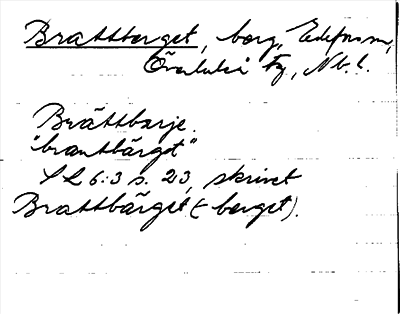 Brattberget, berg, Edefors sn,
Överluleå tg, Nb. l.
Brättbarje.
"brantbärget"
SL 6:3 s. 23, skrivet
Brattbärget (-berget).